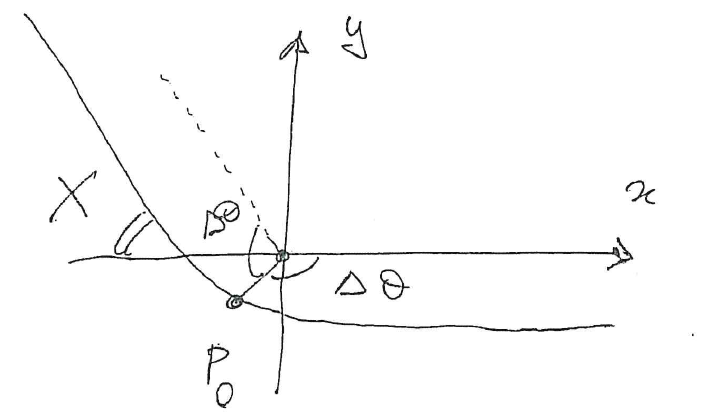 y
x
X
Δθ
Δθ
P₀